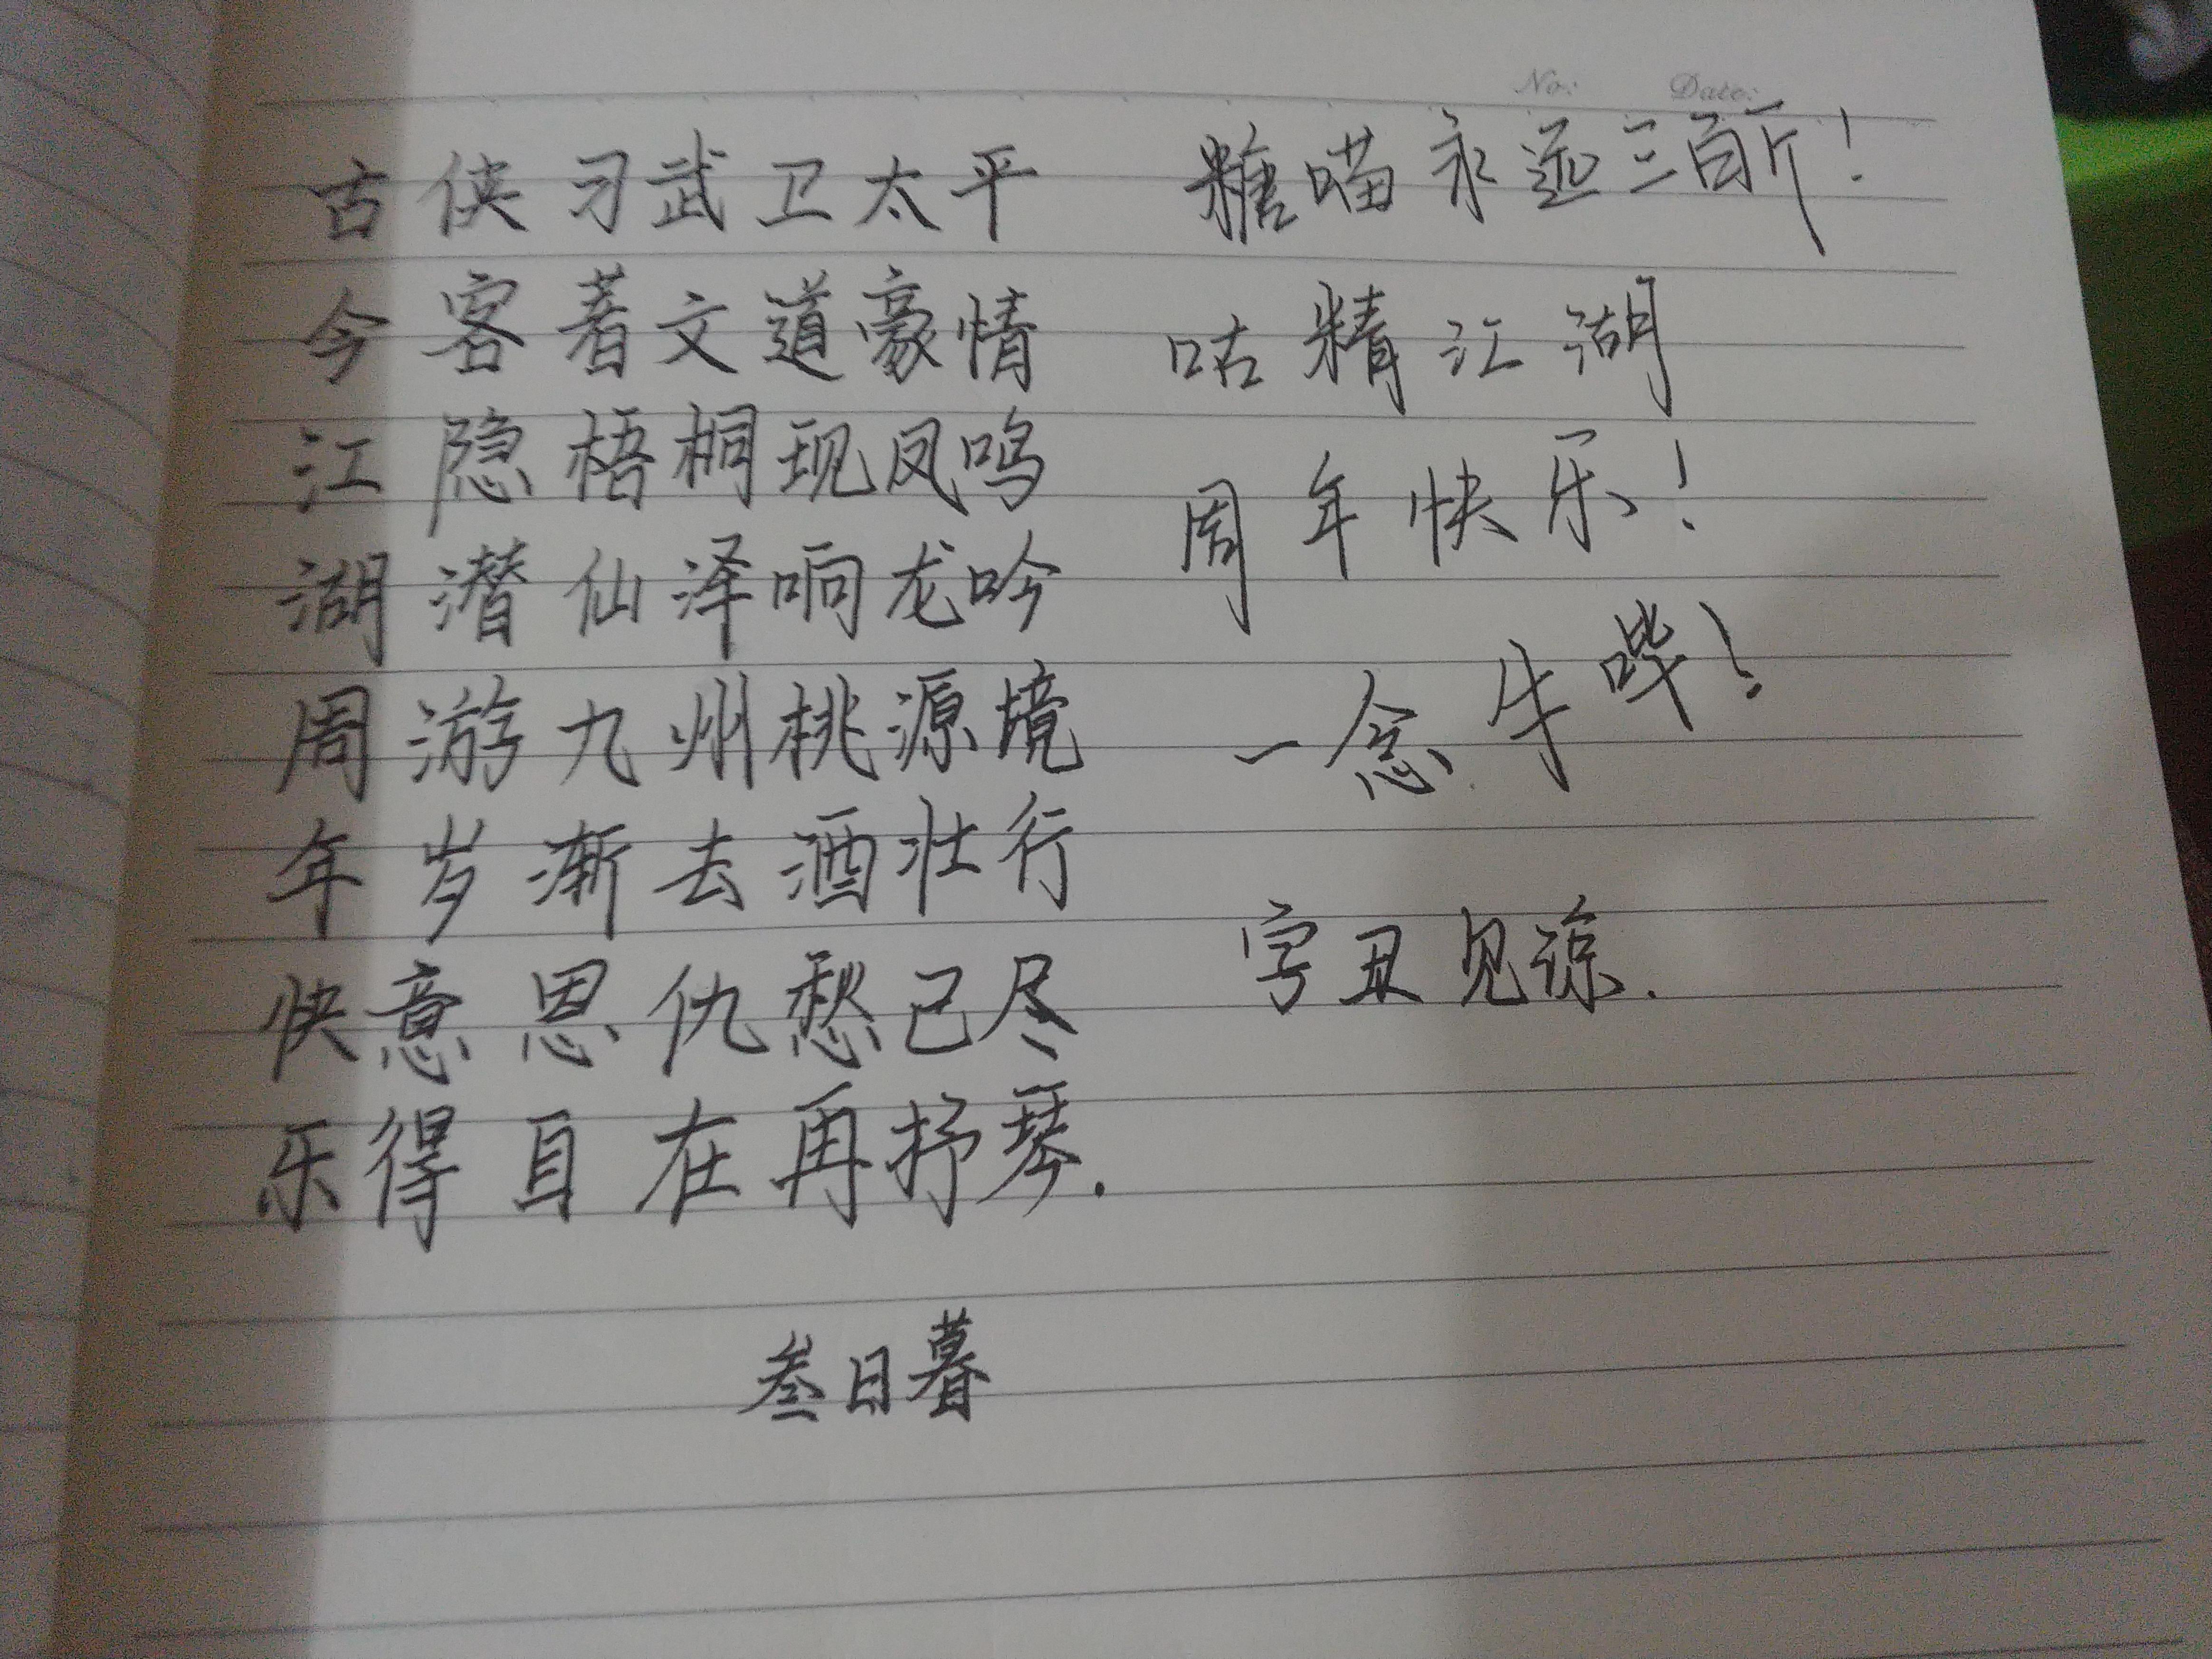 No: Date:
古侠习武卫太平
今客著文道豪情
江隐梧桐现凤鸣
湖潜仙泽响龙吟
周游九州桃源境
年岁渐去酒壮行
快意恩仇愁已尽
乐得自在再抒琴.
叁日暮
糖喵永远三百斤!
咕精江湖
周年快乐!
一念牛哔!
字丑见谅.